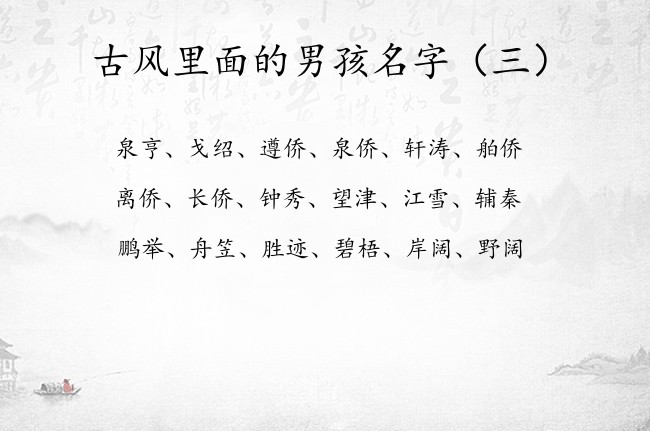 古风里面的男孩名字（三）
泉亨、戈绍、遵侨、泉侨、轩涛、舶侨
离侨、长侨、钟秀、望津、江雪、辅秦
鹏举、舟笠、胜迹、碧梧、岸阔、野阔